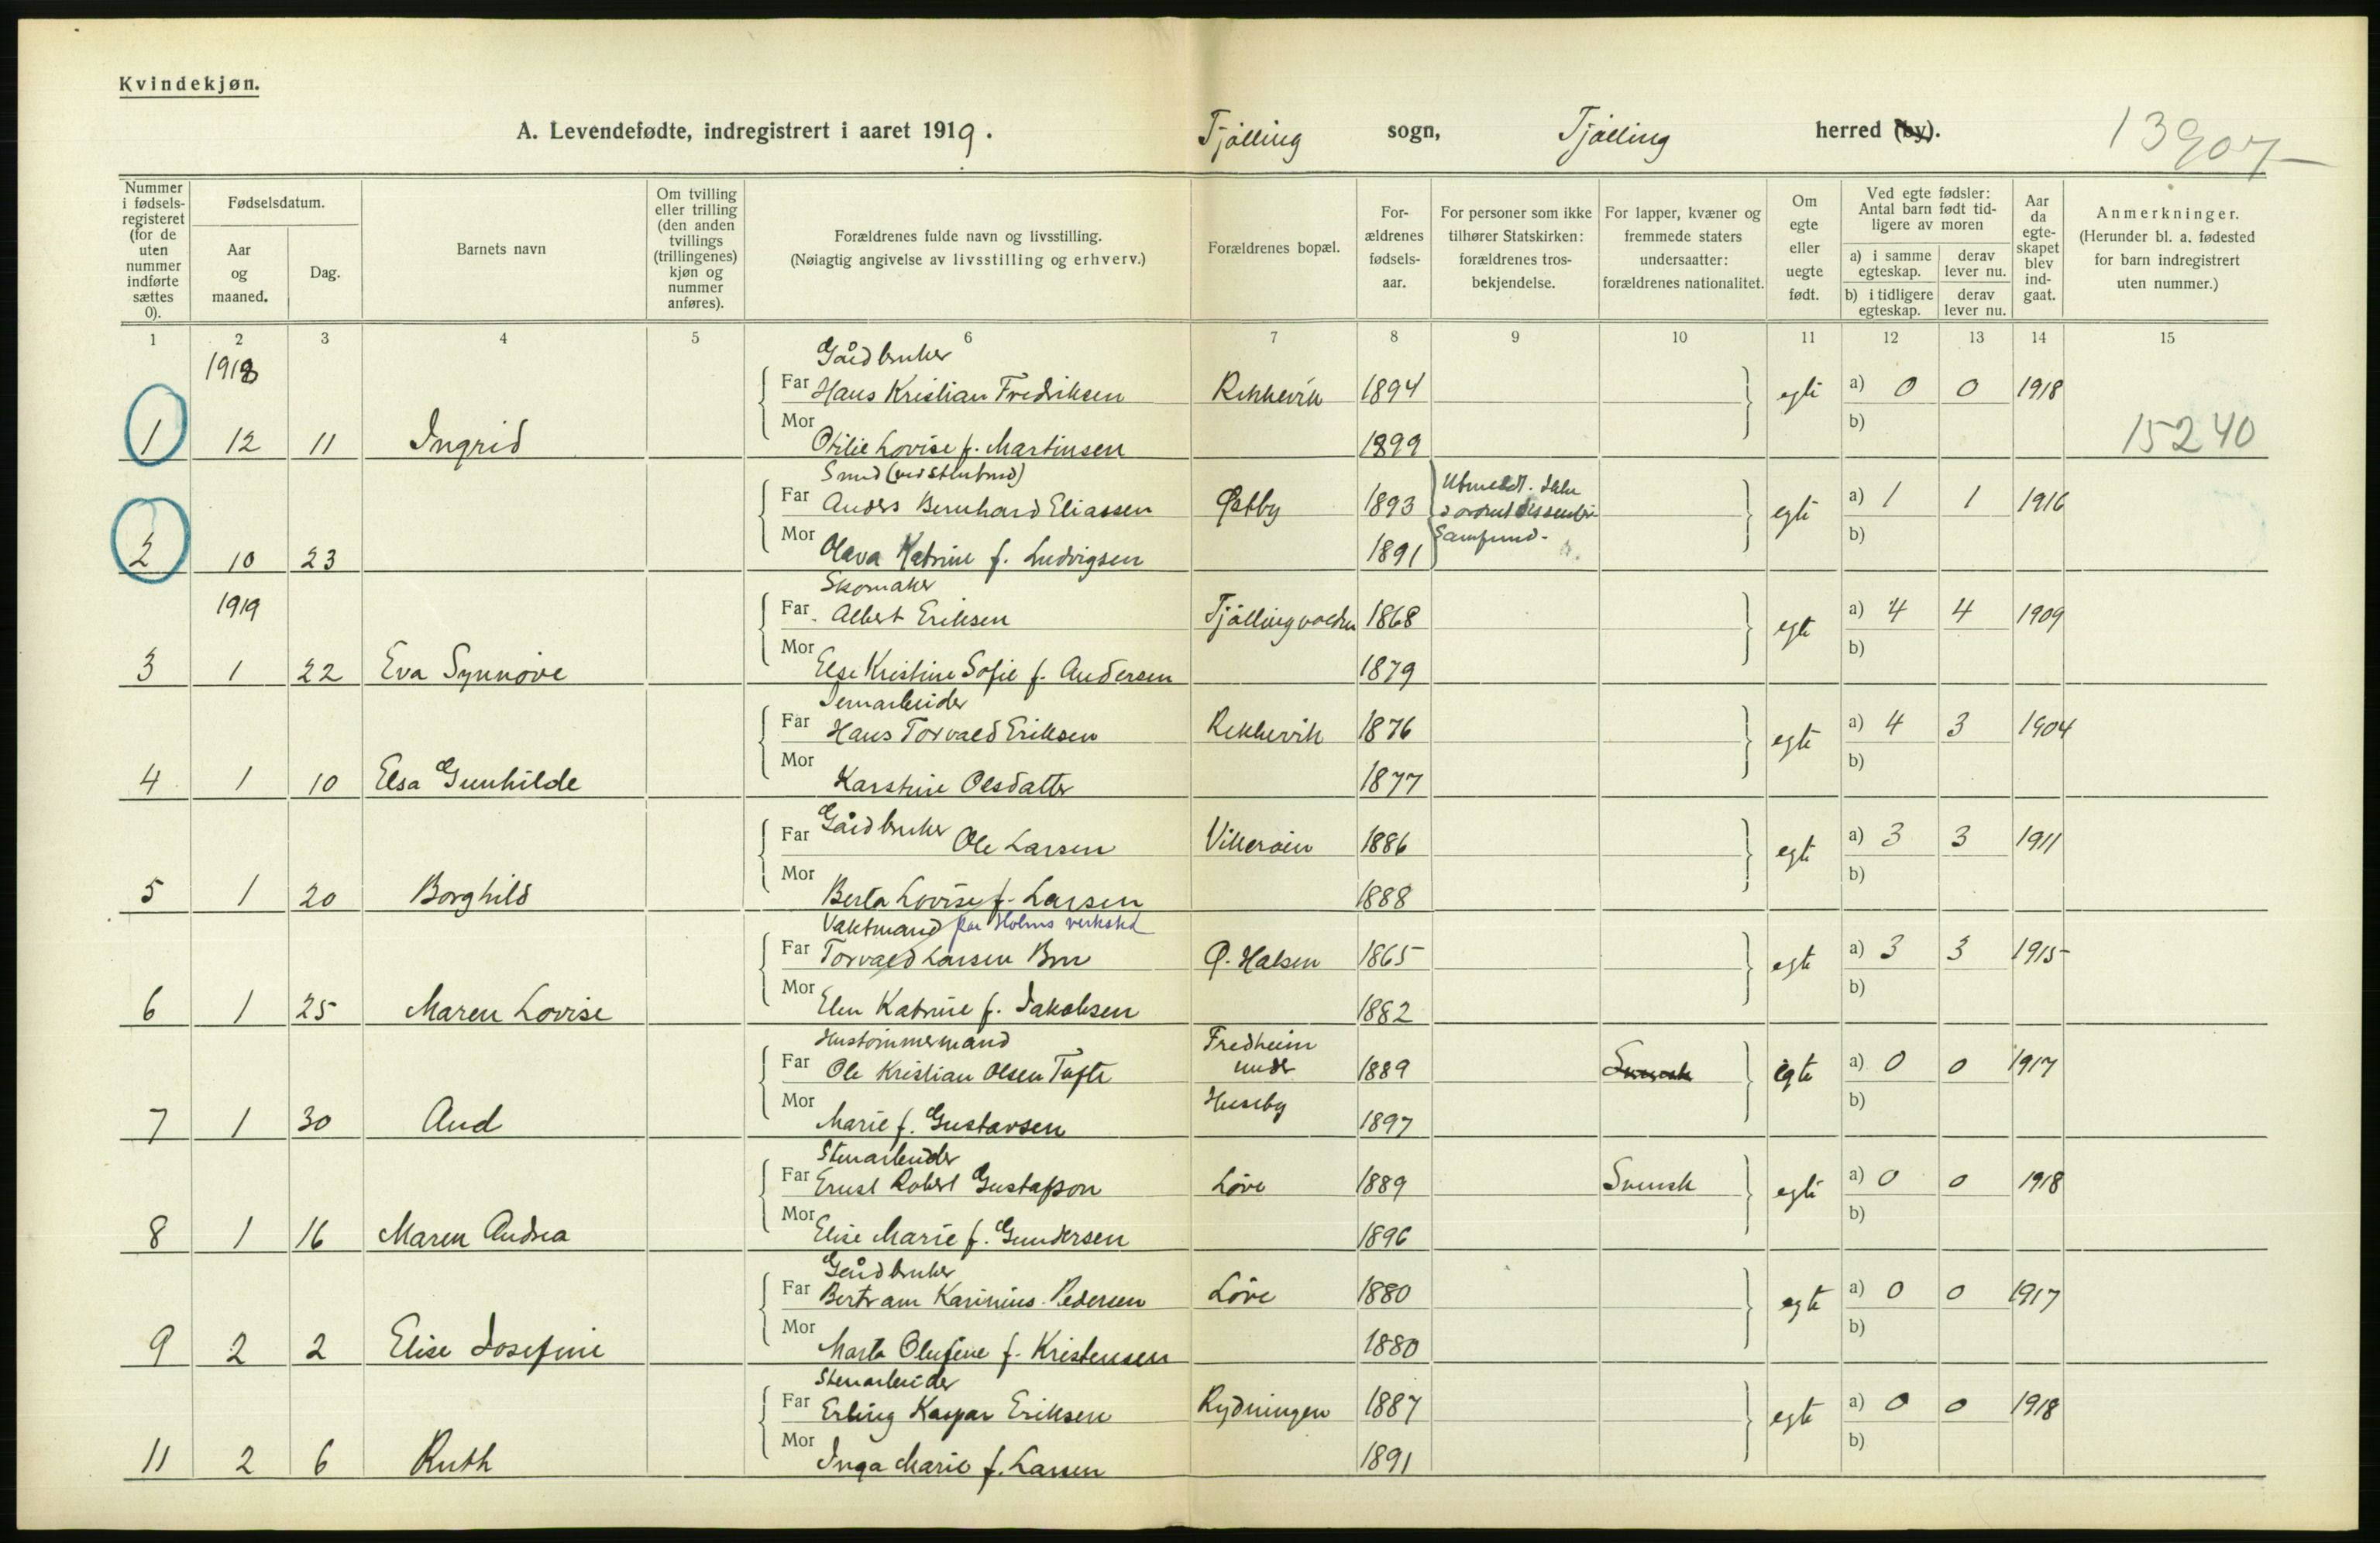 Kvindekjøn.
A. Levendefødte, indregistrert i aaret 1919. Tjølling sogn, Tjølling herred (by). 13907
Nummer i fødselsregisteret (for de uten nummer indførte sættes 0).
Fødselsdatum.
Aar og maaned.
Dag.
Barnets navn
Om tvilling eller trilling (den anden tvillings (trillingenes) kjøn og nummer anføres).
Forældrenes fulde navn og livsstilling.
(Nøiagtig angivelse av livsstilling og erhverv.)
Forældrenes bopæl.
Forældrenes fødselsaar.
For personer som ikke tilhører Statskirken: forældrenes trosbekjendelse.
For lapper, kvæner og fremmede staters undersaatter: forældrenes nationalitet.
Om egte eller uegte født.
Ved egte fødsler: Antal barn født tidligere av moren
a) i samme egteskap. derav lever nu.
b) i tidligere egteskap. derav lever nu.
Aar da egteskapet blev indgaat.
Anmerkninger.
(Herunder bl. a. fødested for barn indregistrert uten nummer.)
1 2 3 4 5 6 7 8 9 10 11 12 13 14 15
1918 Gårdbruker
Far Hans Kristian Fredriksen Rekkevik 1894 egte a) 0 0 1918
1 12 11 Ingrid Mor Otilie Lovise f. Martinsen 1899 b) 15240
Smed
Far Anders Bernhard Eliassen Østby 1893 Utmeldt. Ikke egte a) 1 1 1916
Samfund
2 10 23 Mor Olava Katrine f. Ludvigsen 1891 b)
1919 Skomaker
Far Albert Eriksen Tjøllingvolden 1868 egte a) 4 4 1909
3 1 22 Eva Synnøve Mor Else Kristine Sofie f. Andersen 1879 b)
Jernarbeider
Far Hans Torvald Eriksen Rekkevik 1876 egte a) 4 3 1904
4 1 10 Elsa Gunhilde Mor Karstine Olsdatter 1877 b)
Far Gårdbruker Ole Larsen Vikerøien 1886 egte a) 3 3 1911
5 1 20 Borghild Mor Berta Lovise f. Larsen 1888 b)
Vaktmand paa Holms verksted
Far Torvald Larsen Bru Ø. Halsen 1865 egte a) 3 3 1915
6 1 25 Maren Lovise Mor Elen Katrine f. Jakobsen 1882 b)
Hustømmermand
Far Ole Kristian Olsen Tufte Fredheim under Huseby 1889 Svensk egte a) 0 0 1917
7 1 30 Aud Mor Marie f. Gustavsen 1897 b)
Stenarbeider
Far Ernst Robert Gustafson Løve 1889 Svensk egte a) 0 0 1918
8 1 16 Maren Andrea Mor Elise Marie f. Gundersen 1896 b)
Gårdbruker
Far Bertram Karinius Pedersen Løve 1880 egte a) 0 0 1917
9 2 2 Elise Josefine Mor Marta Olufine f. Kristensen 1880 b)
Stenarbeider
Far Erling Kaspar Eriksen Rydningen 1887 egte a) 0 0 1918
11 2 6 Ruth Mor Inga Marie f. Larsen 1891 b)